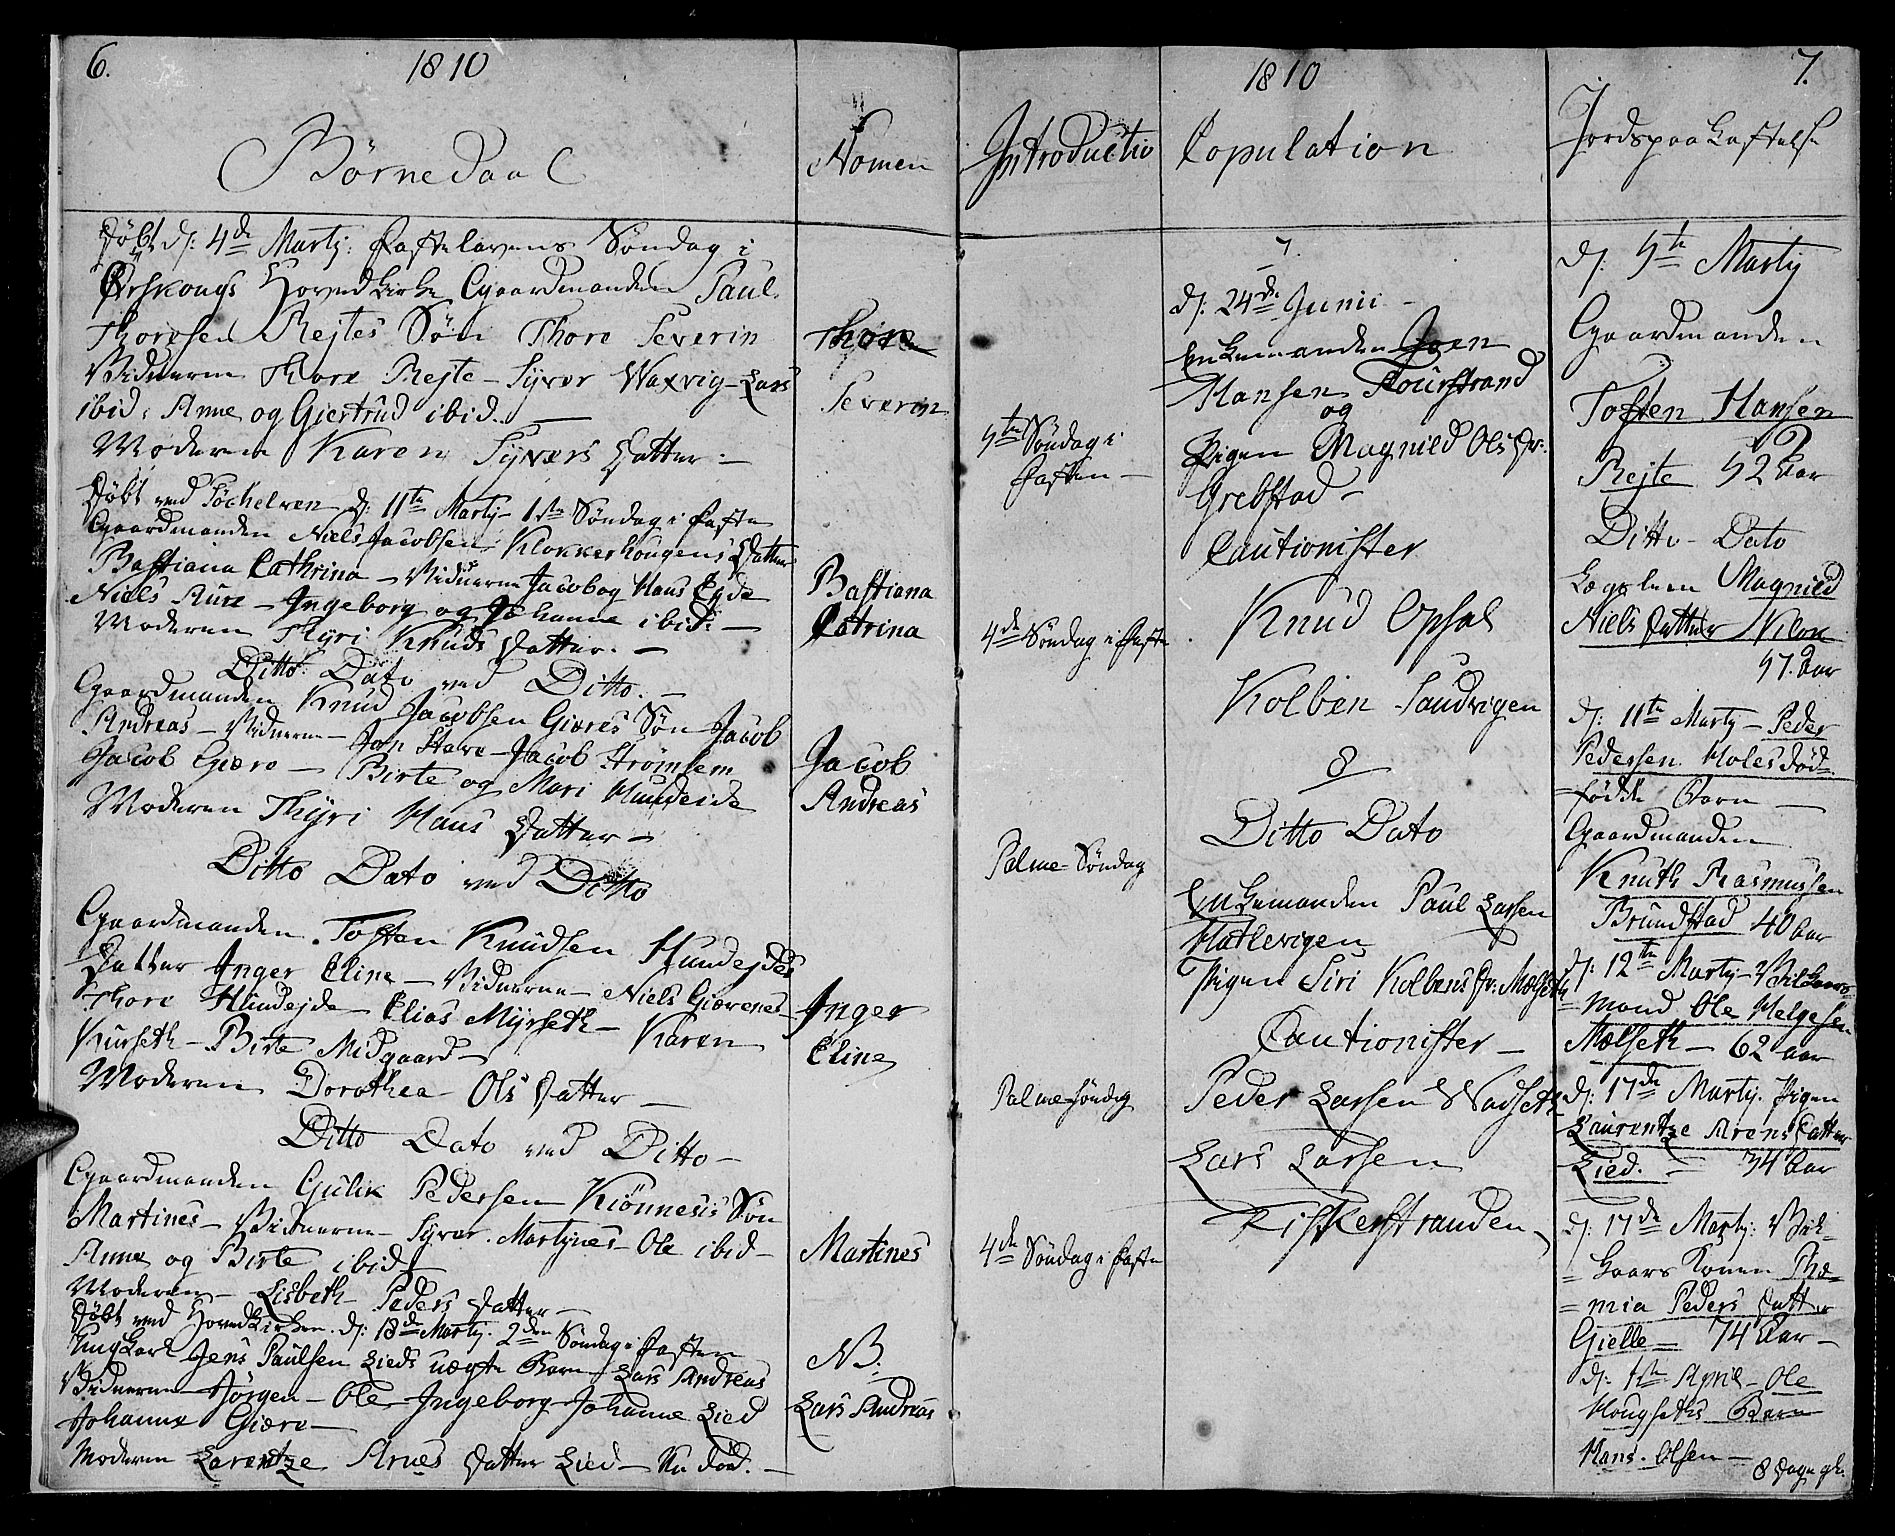 6.
1810
Børnedaab
Nomen
Døbt d: 4de Martj: Fastelavens Søndag i
Ørskougs Hovedkirke Gaardmanden Paul
Thoresen Rejtes Søn Thore Severin
Vidnerne Thore Rejte - Syver Waxvig - Lars
ibid: Anne og Giertrud ibid. -
Moderen Karen Syvers Datter -
Thore
Severin
Døbt ved d: 11te Martj - 1ste Søndag i Faste
Gaardmanden Niels Jacobsen Klokkerhougens Datter
Bastiana Cathrina - Vidnerne Jacob og Hans Egde
Niels Aure - Ingeborg og Johanne ibid: -
Moderen Thyri Knuds Datter. -
Bastiana
Catrina
Ditto Dato ved Ditto. -
Gaardmanden Knud Jacobsen Giæres Søn Jacob
Andreas - Vidnerne - Jon Stave - Jacob Strømhem
Jacob Giære - Birte og Mari Hundeide
Moderen Thyri Hans Datter -
Jacob
Andreas
Ditto Dato ved Ditto
Gaardmanden Tosten Knudsen Hundejdes
Datter Inger Eline - Vidnerne - Niels Giærenes -
Thore Hundejde - Elias Myrseth - Karen
Kurseth - Birte Midgaard -
Moderen Dorothea Ols Datter -
Inger
Eline
Ditto Dato ved Ditto -
Gaardmanden Gulik Pedersen Kiønnesis Søn
Martines - Vidnerne - Syver. Martynes - Ole ibid -
Anne og Birte ibid
Moderen - Lisbeth Peders Datter -
Martines
Døbt ved Hovedkirken. d: 18de Martj. 2den Søndag i Fasten
Ungkarl Jens Paulsen Lieds uægte Barn Lars Andreas
Vidnerne - Jørgen - Ole - Ingeborg - Johanne Lied
Johanne Giære -
Moderen Larentze Arnes Datter Lied - Nu død. -
NB.
Lars Andreas
Introductio
5te Søndag i
Fasten -
4de Søndag i Faste
Palme-Søndag
Palmesøndag
4de Søndag i Faste
1810
Copulation
7.
d: 24de Junii -
Enkemanden Joen
Hansen Tourstrand
og
Pigen Magnild Ols Dr:
Grebstad -
Cautionister
Knud Opsal
Kolben Sandvigen
8
Ditto Dato
Enkemanden Paul Larsen
Hatlevigen
Pigen Siri Kolbens Dr: Mælseth
Cautionister -
Peder Larsen Wadseth
Lars Larsen
Fiskerstranden
7.
Jordspaakastelse
d: 5te Martij
Gaardmanden
Tosten Hansen
Rejte 52 Aar
Ditto - Dato
Magnild
Niels Datter Klok
57. Aar
d: 11te Martj - Peder
Pedersen Holes død-
=fødte Barn -
Gaardmanden
Knuth Rasmussen
Brundstad 40 Aar
d: 12te Martj - Vilkaars-
=mand Ole Helgesen
Mælseth - 62 Aar
d: 17de Martj. Pigen
Laurentze Arens Datter
Lied. - 34 Aar
d: 17de Martj: Vil-
=kaars Konen
=mia Peders Datter
Gielle - 74 Aar -
d: 1ste April - Ole
Hougseths Barn
Hans. Olsen -
8 Dage gl.